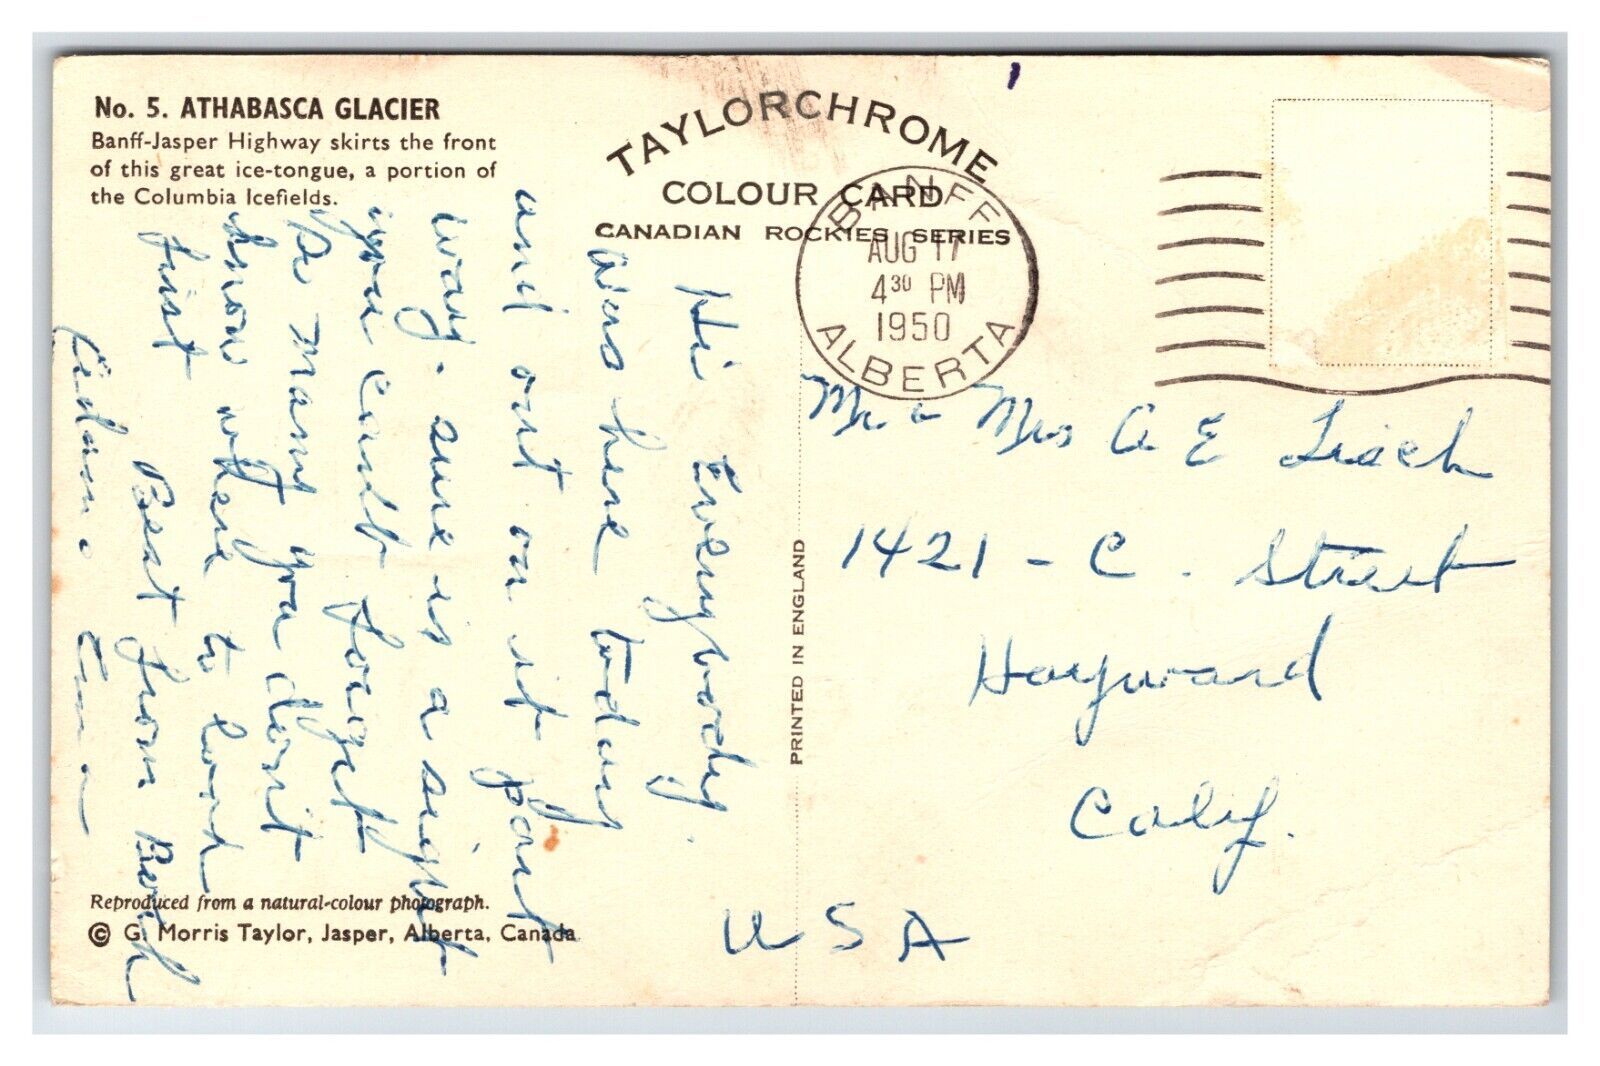 No. 5. ATHABASCA GLACIER
Banff-Jasper Highway skirts the front
of this great ice-tongue, a portion of
the Columbia Icefields.
TAYLORCHROME
COLOUR CARD
CANADIAN ROCKIES SERIES
BANFF
AUG 17
4³⁰ PM
1950
ALBERTA
Hi Everybody.
Was here today
and out on it part
way. sure is a sight
you cant forget
So many you dont
know where to look
first
Best from Both
Mr & Mrs A E
1421 - C. Street
Hayward
Calif.
USA
PRINTED IN ENGLAND
Reproduced from a natural-colour photograph.
© G. Morris Taylor, Jasper, Alberta, Canada